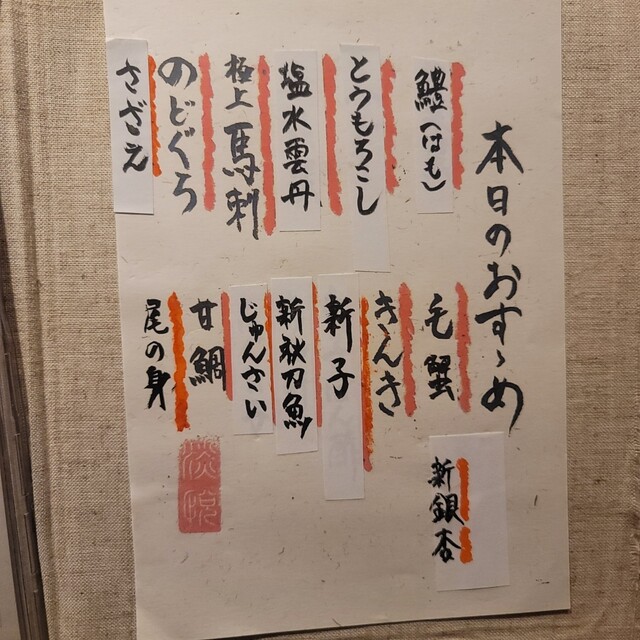 本日のおすゝめ
鱧(はも)
とうもろこし
塩水雲丹
極上馬刺
のどぐろ
さざえ
毛蟹
きんき
新子
新秋刀魚
じゅんさい
甘鯛
尾の身
新銀杏